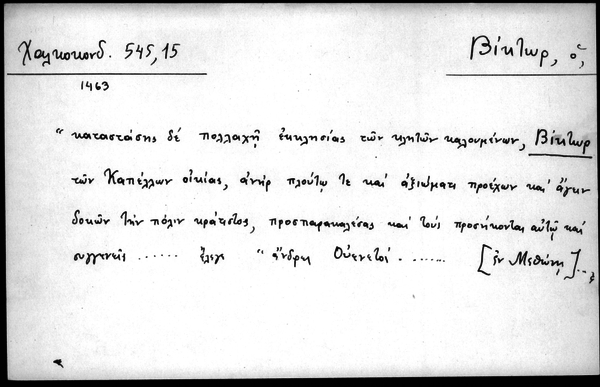 Χαλκοκονδ. 545,15
Βίκτωρ, ὁ,
1463
"καταστάσης δέ πολλαχῇ ἐκκλησίας τῶν κλητῶν καλουμένων, Βίκτωρ
τῶν Καπέλλων οἰκίας, ἀνήρ πλούτῳ τε καί ἀξιώματι προέχων καί
δοκῶν τήν πόλιν κράτιστος, προσπαρακαλέσας καί τούς προσήκοντας αὐτῷ καί
συγγενεῖς ...... ἔλεγε "ἄνδρες Οὐενετοί ........ [ἐν Μεθώνῃ]...